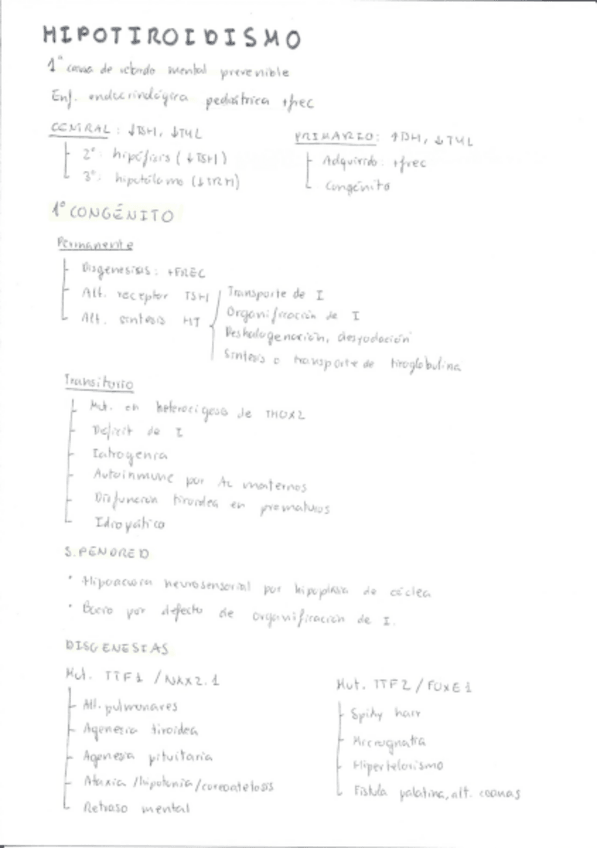 HIPOTIROIDISMO
1ª causa de retardo mental prevenible
Enf. endocrinológica pediátrica +frec
CENTRAL: ↓TSH, ↓T4L
2º: hipófisis (↓TSH)
3º: hipotálamo (↓TRH)
PRIMARIO: ↑TSH, ↓T4L
Adquirido: +frec
Congénito
1º CONGÉNITO
Permanente
Disgenesias: +FREC
Alt. receptor TSH
Alt. síntesis HT
Transporte de I
Organificación de I
Deshalogenación, desyodación
Síntesis o transporte de tiroglobulina
Transitorio
Mut. en heterocigosis de THOX2
Déficit de I
Iatrogenia
Autoinmune por Ac maternos
Disfunción tiroidea en prematuros
Idiopático
S. PENDRED
• Hipoacusia neurosensorial por hipoplasia de cóclea
• Bocio por defecto de organificación de I.
DISGENESIAS
Mut. TTF1 / NKX2.1
Alt. pulmonares
Agenesia tiroidea
Agenesia pituitaria
Ataxia /hipotonía/coreoatetosis
Retraso mental
Mut. TTF2 / FOXE1
Spiky hair
Micrognatia
Hipertelorismo
Fístula palatina, alt. coanas